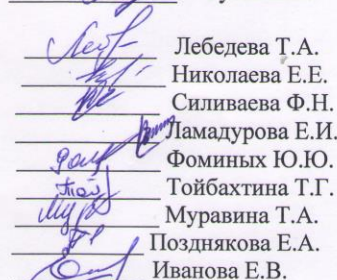 Лебедева Т.А.
Николаева Е.Е.
Силиваева Ф.Н.
Ламадурова Е.И.
Фоминых Ю.Ю.
Тойбахтина Т.Г.
Муравина Т.А.
Позднякова Е.А.
Иванова Е.В.